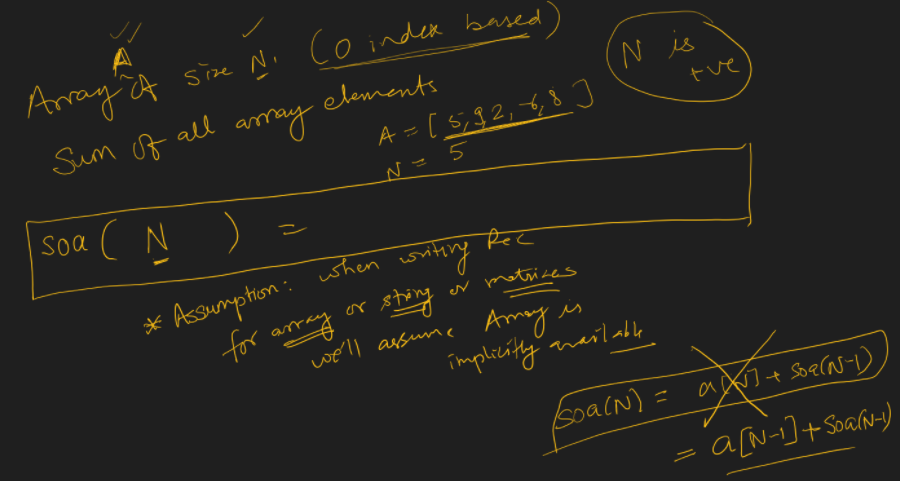 Array A of size N. (0 index based)
N is +ve
Sum of all array elements
A = [5, 9, 2, -6, 8]
N = 5
soa( N ) =
* Assumption: when writing Rec
for array or string or matrices
we'll assume Array is
implicitly available
soa(N) = a[N] + soa(N-1)
= a[N-1] + soa(N-1)